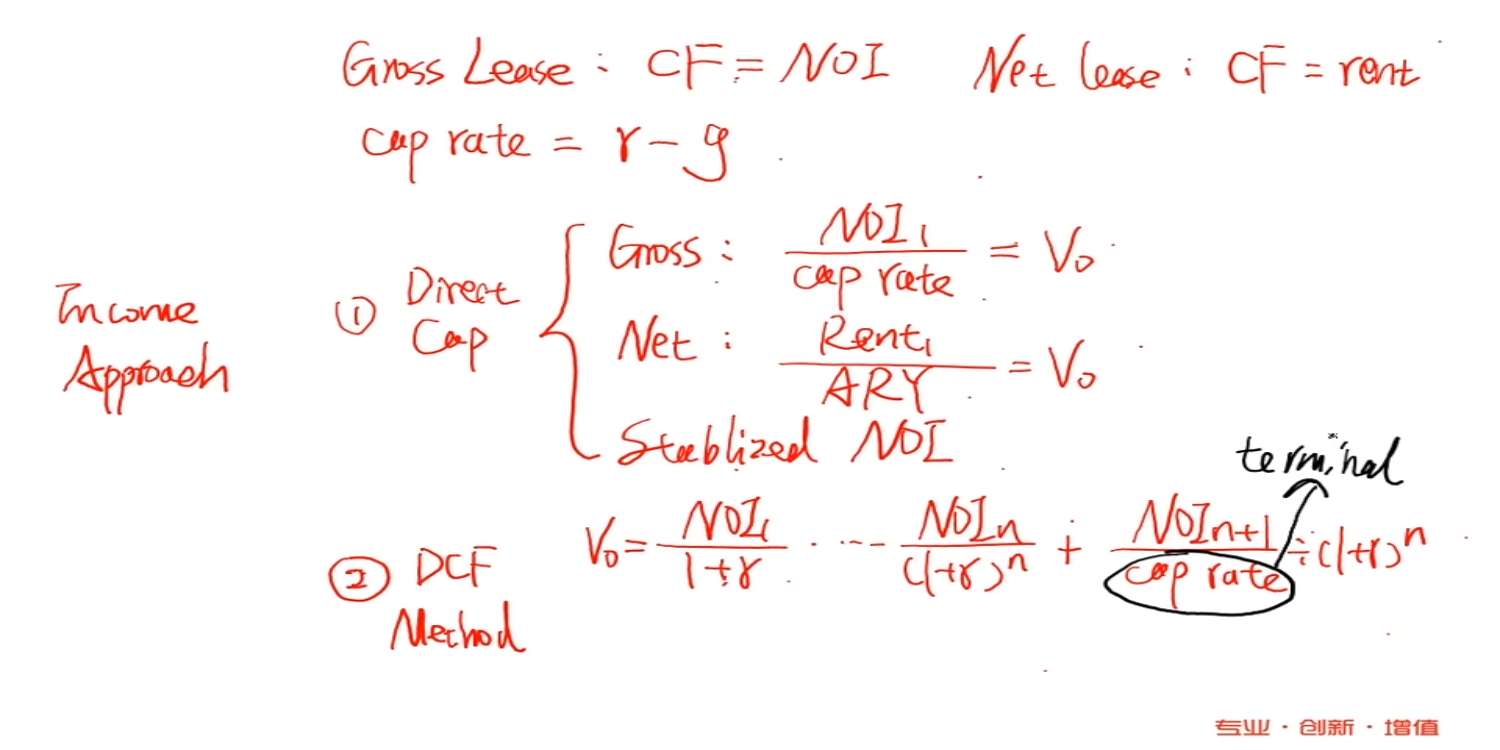 Gross Lease : CF = NOI    Net lease : CF = rent
cap rate = r - g
Income Approach
① Direct Cap
Gross : NOI₁ / cap rate = V₀
Net : Rent₁ / ARY = V₀
Stablized NOI
terminal
② DCF Method
V₀ = NOI₁ / 1+r ····· NOIn / (1+r)ⁿ + NOIn+1 / cap rate ÷ (1+r)ⁿ
专业·创新·增值